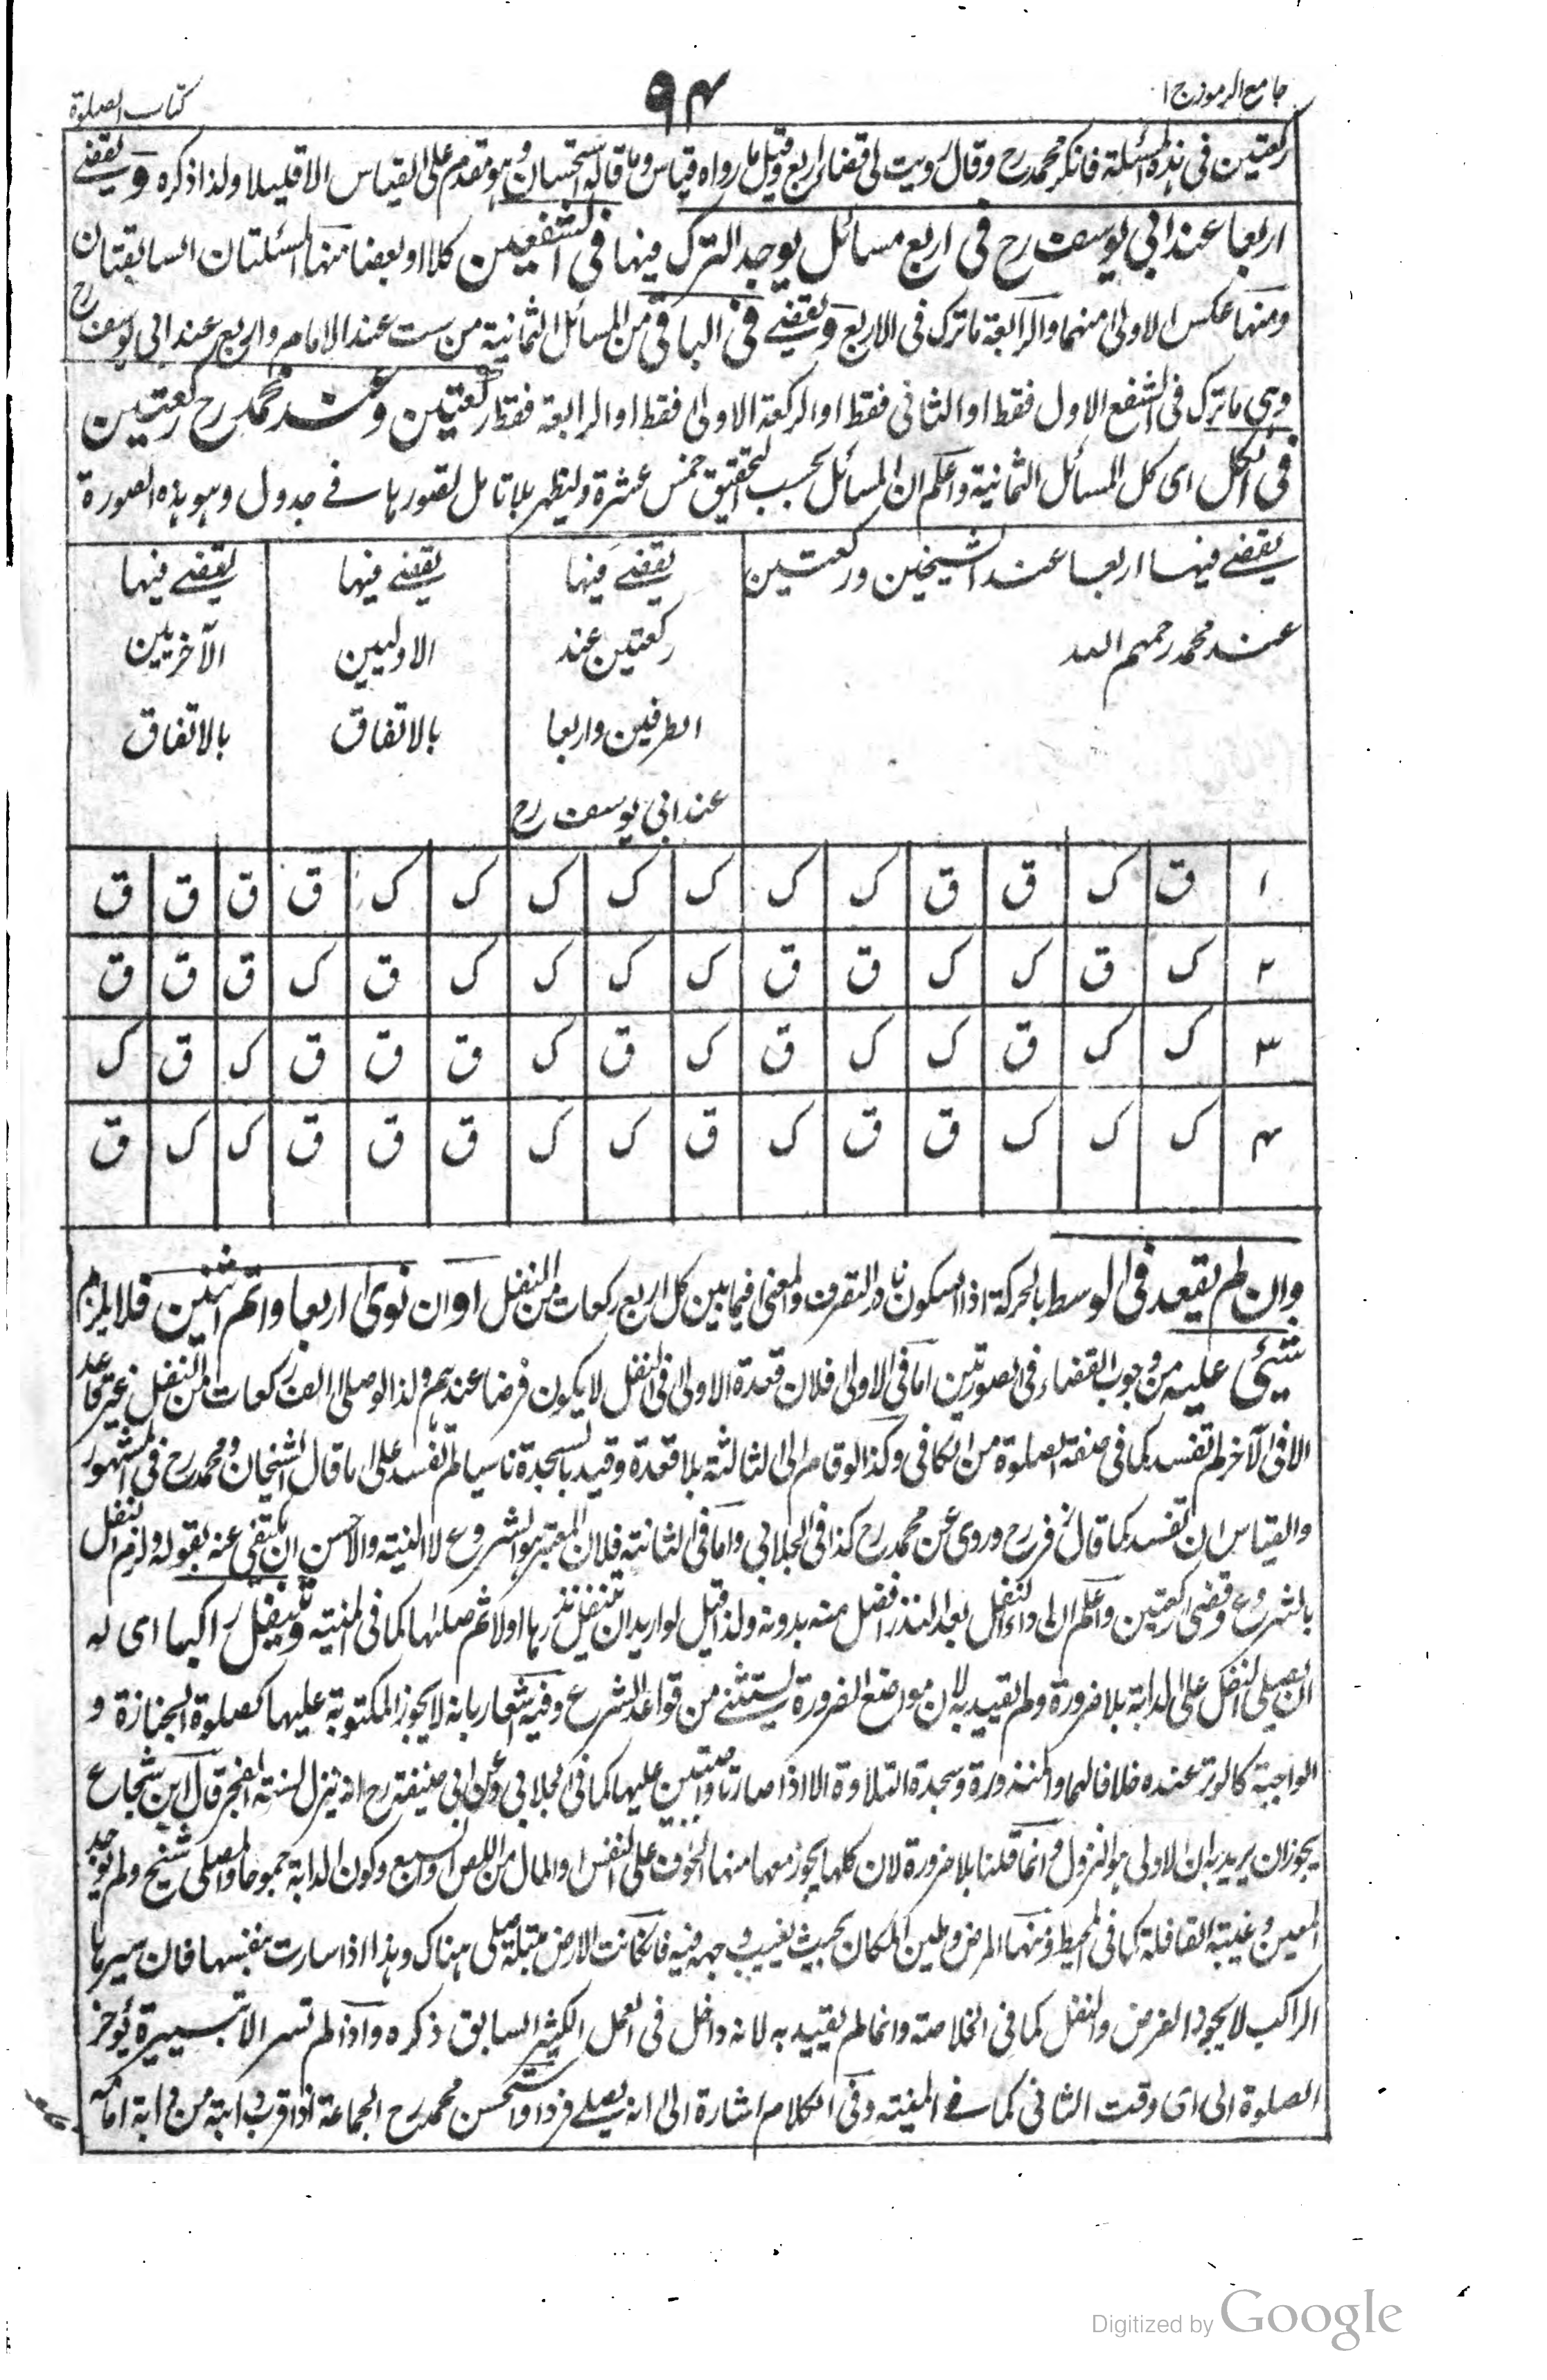 جامع الرموز ج ١
٩٤
كتاب الصلوة
ركعتين فى هذه المسئلة فانكر محمد رح وقال رويت لى قضاء اربع وقيل ما رواه قياس وما قاله استحسان وهو مقدم على القياس الا قليلا ولذا ذكره ويقضے
اربعا عند ابي يوسف رح فى اربع مسائل يوجد الترك فيها فى الشفعين كلا او بعضا منها المسئلتان السابقتان
ومنها عكس الاولى منهما والرابعة ما ترك فى الاربع ويقضے فى الباقى من المسائل الثمانية من ست عند الامام واربع عند ابي يوسف رح
وهى ما ترك فى الشفع الاول فقط او الثانى فقط او الركعة الاولى فقط او الرابعة فقط ركعتين وعند محمد رح ركعتين
فى الكل اى كل المسائل الثمانية واعلم ان المسائل بحسب التحقيق خمس عشرة وليظهر بلا تامل تصورها فے جدول وهو بهذه الصورة
يقضے فيها اربعا عند الشيخين وركعتين
عند محمد رحمهم الله
يقضے فيها
ركعتين عند
الطرفين واربعا
عند ابي يوسف رح
يقضے فيها
الاوليين
بالاتفاق
يقضے فيها
الآخريين
بالاتفاق
١ ق ك ق ق ك ك ك ك ك ك ك ق ق ق ق
٢ ك ق ك ك ق ق ك ك ك ك ق ك ق ق ق
٣ ك ك ق ك ك ق ك ق ك ق ق ق ك ق ك
٤ ك ك ك ق ق ك ق ك ك ق ق ق ك ك ق
وان لم يقعد فى الوسط بالحركة اذ السكون نادر التصرف والمعنى فيما بين كل اربع ركعات من النفل او ان نوى اربعا واتم اثنين فلا يلزم
شيئ عليه من وجوب القضاء فى الصورتين اما فى الاولى فلان قعدة الاولى فى النفل لا يكون فرضا عندهم ولذا لو صلى الف ركعات من النفل غير قاعد
الا فى الآخر لم تفسد كما فى صفة الصلوة من الكافى وكذا لو قام الى الثالثة بلا قعدة وقيد بالسجدة ناسيا لم تفسد على ما قال الشيخان ومحمد رح فى المشهور
والقياس ان تفسد كما قال زفر رح وروى عن محمد رح كذا فى الجلابي واما فى الثانية فلان المعتبر هو الشروع لا النية والاحسن ان يكتفى عنه بقوله ولزم النفل
بالشروع وقضى ركعتين واعلم ان اداء النفل بعد النذر افضل منه بدونه ولذا قيل لو اريد ان تنفل نذرها اولا ثم صلها كما فى المنية ويتنفل راكبا اى له
ان يصلى النفل على الدابة بلا ضرورة ولم يقيد به لان مواضع الضرورة يستثنے من قواعد الشرع وفيه اشعار بانه لا يجوز المكتوبة عليها كصلوة الجنازة و
الواجبة كالوتر عنده خلافا لهما والمنذورة وسجدة التلاوة الا اذا صارتا واجبتين عليها كما فى الجلابي وعن ابي حنيفة رح انه ينزل لسنة الفجر قال ابن شجاع
يجوز ان يريد به ان الاولى هو النزول وانما قلنا بلا ضرورة لان كلها يجوز معها منها الخوف على النفس والمال من اللص والسبع وكون الدابة جموحا والمصلى شيخ ولم يوجد
المعين وغيبة القافلة كما فى المحيط ومنها المرض وطين المكان بحيث يغيب وجهه فيه فان كانت الارض مبتلة صلى هناك وهذا اذا سارت بنفسها فان سيرها
الراكب لا يجوز الفرض والنفل كما فى الخلاصة وانما لم يقيد به لانه داخل فى العمل الكثير السابق ذكره واذا لم تسر الا بتسييره يؤخر
الصلوة الى اى وقت الثانى كما فے المنية وفى الكلام اشارة الى انه يصلے فردا واستحسن محمد رح الجماعة اذا قرب دابته من دابة امامه
Digitized by Google